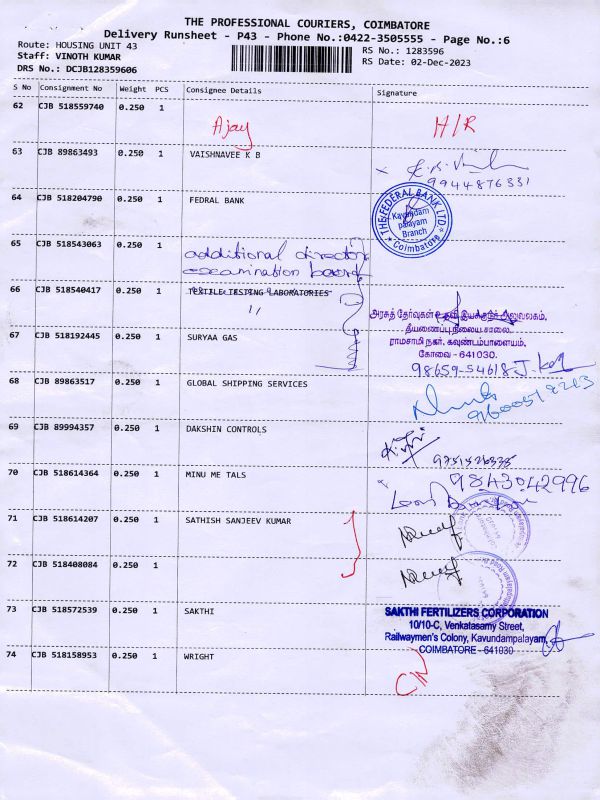 THE PROFESSIONAL COURIERS, COIMBATORE
Delivery Runsheet - P43 - Phone No.:0422-3505555 - Page No.:6
Route: HOUSING UNIT 43
RS No.: 1283596
Staff: VINOTH KUMAR
RS Date: 02-Dec-2023
DRS No.: DCJB128359606
S No Consignment No Weight PCS Consignee Details Signature
62 CJB 518559740 0.250 1
Ajay H/R
63 CJB 89863493 0.250 1 VAISHNAVEE K B
9944876331
64 CJB 518204790 0.250 1 FEDRAL BANK
THE FEDERAL BANK LTD.
Kavundam
palayam
Branch
Coimbatore
65 CJB 518543063 0.250 1
additional director
examination board
66 CJB 518540417 0.250 1 TEXTILE TESTING LABORATORIES
அரசுத் தேர்வுகள் உதவி இயக்குநர் அலுவலகம்,
தீயணைப்பு நிலைய சாலை,
ராமசாமி நகர், கவுண்டம்பாளையம்,
கோவை - 641030.
67 CJB 518192445 0.250 1 SURYAA GAS
98659-54618
68 CJB 89863517 0.250 1 GLOBAL SHIPPING SERVICES
69 CJB 89994357 0.250 1 DAKSHIN CONTROLS
70 CJB 518614364 0.250 1 MINU ME TALS
9843042996
71 CJB 518614207 0.250 1 SATHISH SANJEEV KUMAR
72 CJB 518408084 0.250 1
73 CJB 518572539 0.250 1 SAKTHI
SAKTHI FERTILIZERS CORPORATION
10/10-C, Venkatasamy Street,
Railwaymen's Colony, Kavundampalayam,
COIMBATORE - 641030
74 CJB 518158953 0.250 1 WRIGHT